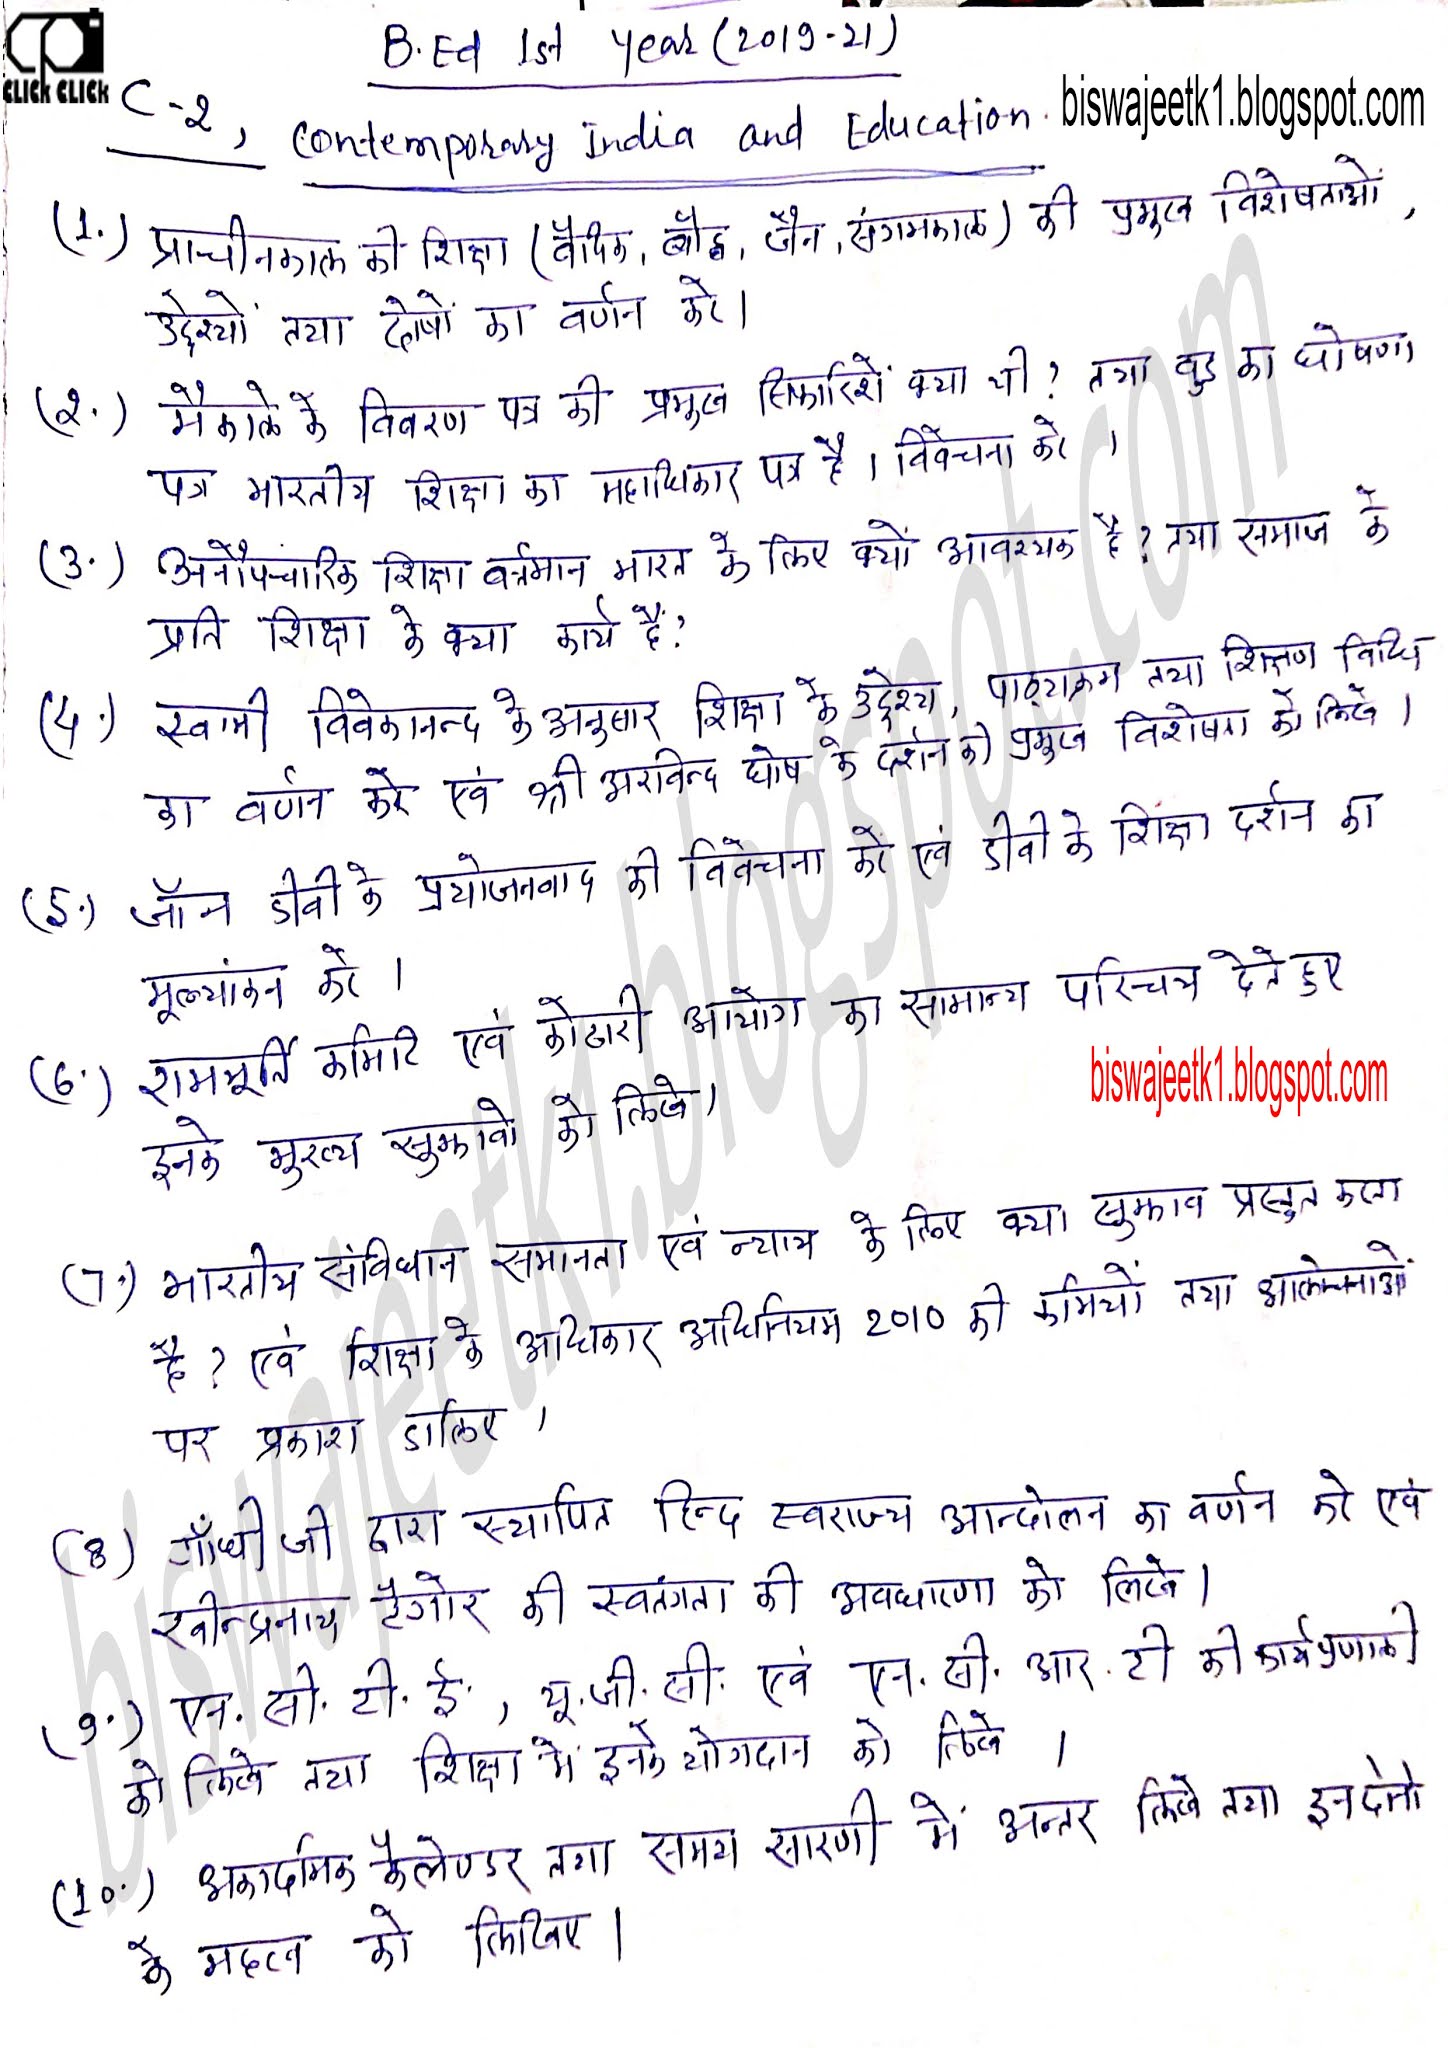 CLICK CLICK
B.Ed 1st Year (2019-21)
biswajeetk1.blogspot.com
C-2, Contemporary India and Education.
(1.) प्राचीनकाल की शिक्षा (वैदिक, बौद्ध, जैन, संगमकाल) की प्रमुख विशेषताओं,
उद्देश्यों तथा दोषों का वर्णन करे।
(2.) मैकाले के विवरण पत्र की प्रमुख सिफारिशें क्या थी? तथा वुड का घोषणा
पत्र भारतीय शिक्षा का महाधिकार पत्र है। विवेचना करे।
(3.) अनौपचारिक शिक्षा वर्तमान भारत के लिए क्यों आवश्यक है? तथा समाज के
प्रति शिक्षा के क्या कार्य हैं?
(4.) स्वामी विवेकानन्द के अनुसार शिक्षा के उद्देश्य, पाठ्यक्रम तथा शिक्षण विधि
का वर्णन करें एवं श्री अरविन्द घोष के दर्शन की प्रमुख विशेषता को लिखें।
(5.) जॉन डीवी के प्रयोजनवाद की विवेचना करें एवं डीवी के शिक्षा दर्शन का
मूल्यांकन करे।
(6.) राममूर्ति कमिटि एवं कोठारी आयोग का सामान्य परिचय देते हुए
biswajeetk1.blogspot.com
इनके मुख्य सुझावो को लिखे।
(7.) भारतीय संविधान समानता एवं न्याय के लिए क्या सुझाव प्रस्तुत करता
है? एवं शिक्षा के अधिकार अधिनियम 2010 की कमियों तथा आलोचनाओं
पर प्रकाश डालिए।
(8) गाँधी जी द्वारा स्थापित हिन्द स्वराज्य आन्दोलन का वर्णन करे एवं
रवीन्द्रनाथ टैगोर की स्वतंत्रता की अवधारणा को लिखे।
(9.) एन. सी. टी. ई., यू. जी. सी. एवं एन. सी. आर. टी की कार्यप्रणाली
को लिखे तथा शिक्षा में इनके योगदान को लिखे।
(10.) अकादमिक कैलेण्डर तथा समय सारणी में अन्तर लिखें तथा इन दोनो
के महत्व को लिखिए।
biswajeetk1.blogspot.com